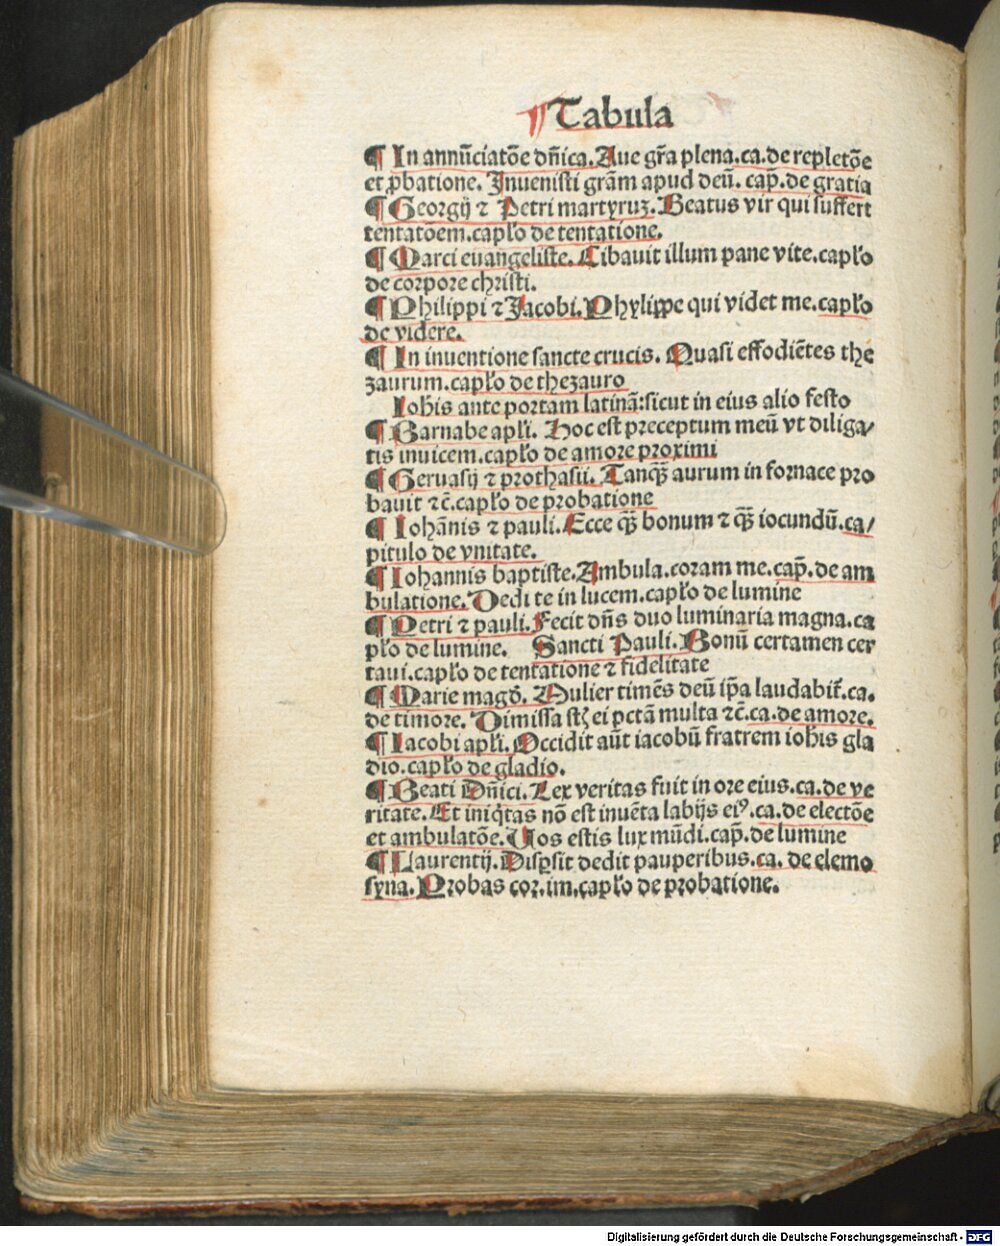 ¶ Tabula
¶ In annūciatōe dñica. Aue gr̃a plena. ca. de repletōe
et ꝓbatione. Inuenisti grām apud deū. cap̄. de gratia
¶ Georgij ⁊ Petri martyruꝫ. Beatus vir qui suffert
tentatōem. capło de tentatione.
¶ Marci euangeliste. Cibauit illum pane vite. capło
de corpore christi.
¶ Philippi ⁊ Jacobi. Phylippe qui videt me. capło
de videre.
¶ In inuentione sancte crucis. Quasi effodiētes the
zaurum. capło de thezauro
Iohis ante portam latinā: sicut in eius alio festo
¶ Barnabe apłi. Hoc est preceptum meū vt diliga/
tis inuicem. capło de amore proximi
¶ Geruasij ⁊ prothasii. Tanqꝫ aurum in fornace pro
bauit ⁊c̄. capło de probatione
¶ Iohānis ⁊ pauli. Ecce qꝫ bonum ⁊ qꝫ iocundū. ca/
pitulo de vnitate.
¶ Iohannis baptiste. Ambula. coram me. cap̄. de am
bulatione. Dedi te in lucem. capło de lumine
¶ Petri ⁊ pauli. Fecit dñs duo luminaria magna. ca
pło de lumine. Sancti Pauli. Bonū certamen cer
taui. capło de tentatione ⁊ fidelitate
¶ Marie magd̄. Mulier timēs deū ip̄a laudabit̄. ca.
de timore. Dimissa stꝫ ei pctā multa ⁊c̄. ca. de amore.
¶ Iacobi apłi. Occidit aūt iacobū fratrem iohis gla
dio. capło de gladio.
¶ Beati Dñici. Lex veritas fuit in ore eius. ca. de ve
ritate. Et iniq̇tas nō est inuēta labijs eiꝰ. ca. de electōe
et ambulatōe. Uos estis lux mūdi. cap̄. de lumine
¶ Laurentij. Disꝑsit dedit pauperibus. ca. de elemo
syna. Probas cor. im. capło de probatione.
Digitalisierung gefördert durch die Deutsche Forschungsgemeinschaft - DFG